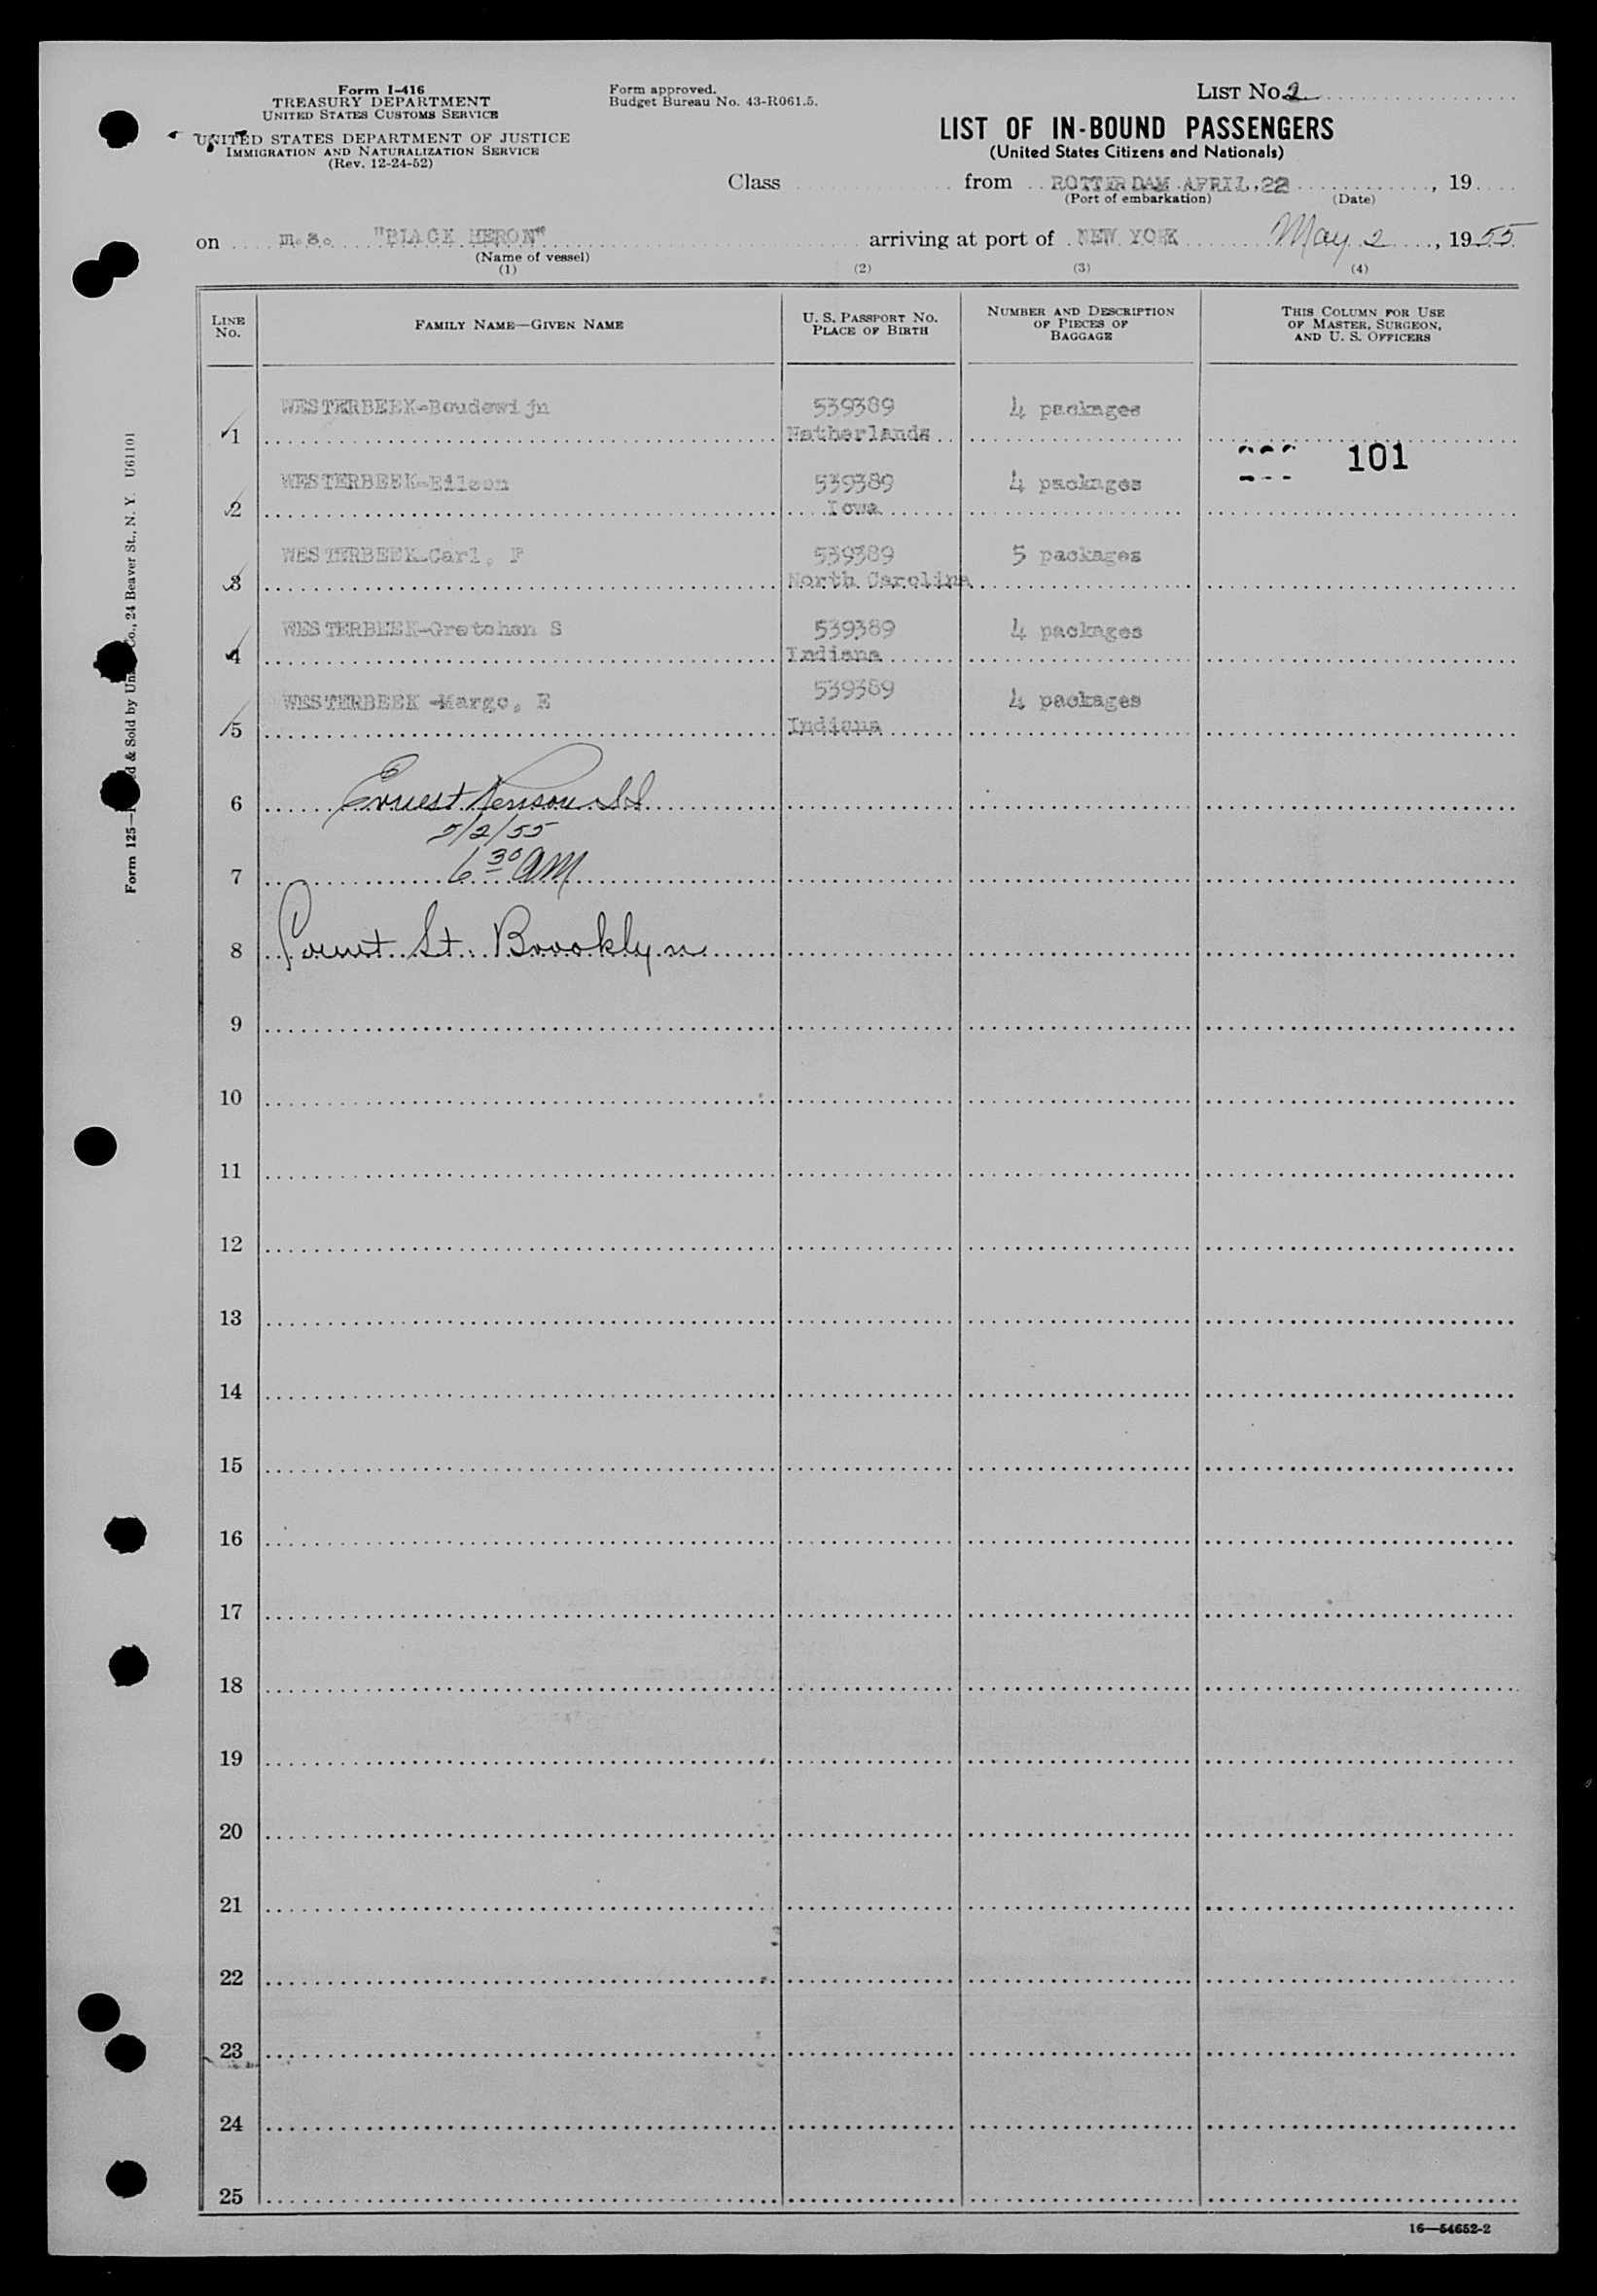 Form I-416
TREASURY DEPARTMENT
UNITED STATES CUSTOMS SERVICE
UNITED STATES DEPARTMENT OF JUSTICE
IMMIGRATION AND NATURALIZATION SERVICE
(Rev. 12-24-52)
Form approved.
Budget Bureau No. 43-R061.5.
LIST No. 2
LIST OF IN-BOUND PASSENGERS
(United States Citizens and Nationals)
Class from ROTTERDAM APRIL, 22 , 19
(Port of embarkation) (Date)
on m.s. "BLACK HERON" arriving at port of NEW YORK May 2, 1955
(Name of vessel)
(1) (2) (3) (4)
LINE No.
FAMILY NAME—GIVEN NAME
U. S. PASSPORT NO.
PLACE OF BIRTH
NUMBER AND DESCRIPTION
OF PIECES OF
BAGGAGE
THIS COLUMN FOR USE
OF MASTER, SURGEON,
AND U. S. OFFICERS
WESTERBEEK-Boudewijn 539389 4 packages
1 Netherlands
101
WESTERBEEK-Eileen 539389 4 packages
2 Iowa
WESTERBEEK-Carl, F 539389 5 packages
3 North Carolina
WESTERBEEK-Gretchen S 539389 4 packages
4 Indiana
WESTERBEEK -Margo, E 539389 4 packages
5 Indiana
6 Ernest
5/2/55
7 6 30 AM
8 St. Brooklyn
9
10
11
12
13
14
15
16
17
18
19
20
21
22
23
24
25
16—54652-2
Form 125— d & Sold by Un Co., 24 Beaver St., N. Y. U61101